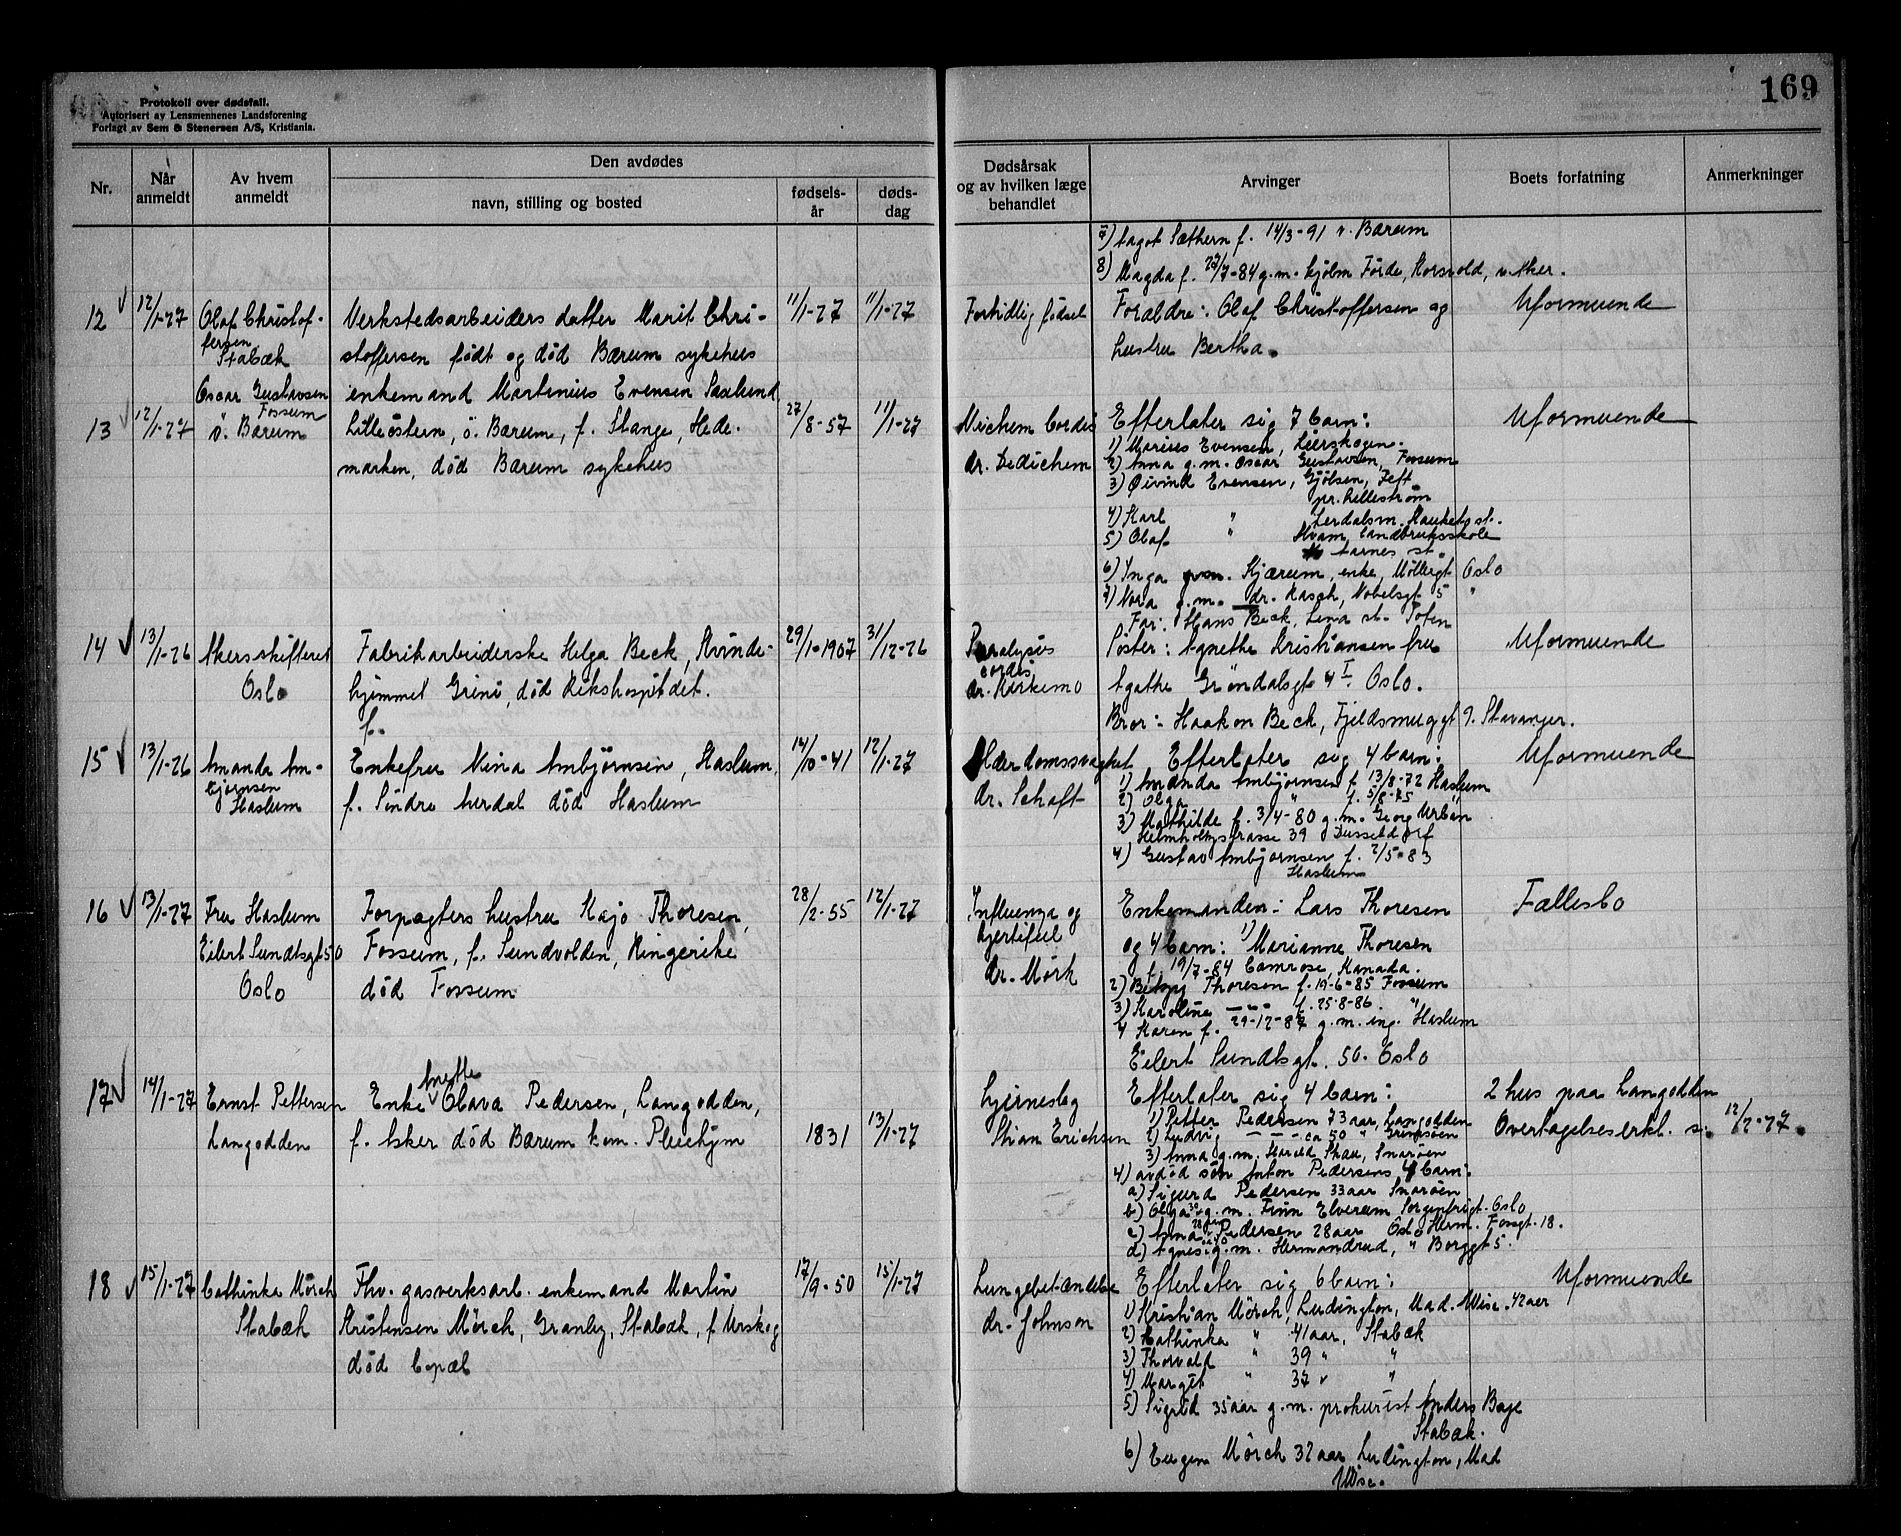 169
Protokoll over dødsfall.
Autorisert av Lensmennenes Landsforening
Forlagt av Sem & Stenersen A/S, Kristiania.
Nr.
Når anmeldt
Av hvem anmeldt
Den avdødes
navn, stilling og bosted
fødselsår
dødsdag
Dødsårsak og av hvilken læge behandlet
Arvinger
Boets forfatning
Anmerkninger
7) Aagot Sæthern f. 14/3-91 v. Bærum
8) Magda f. 27/7-84 g.m. Hjalm Förde, Korsvold, v. Aker.
12 12/1-27 Olaf Christof- Verkstedsarbeiders datter Marit Chri- 11/1-27 11/1-27 Fortidlig födsel Forældre: Olaf Christoffersen og Uformuende
fersen
Stabæk stoffersen født og död Bærum sykehus hustru Bertha.
Oscar Gustavsen enkemand Martinius Evensen Saxlund
Fossum
13 12/1-27 ö. Bærum Lilleöstern, ö. Bærum, f. Stange, Hede- 27/8-57 11/1-27 cordis Efterlater sig 7 barn: Uformuende
marken, död Bærum sykehus dr. Dedichem
1) Marius Evensen, Lierskogen.
2) Anna g.m. Oscar Gustavsen, Fossum
3) Öivind Evensen, Gjölsen, Fett
pr. Lillestrøm
4) Karl " Lerdalsm. Hauketo st.
5) Olaf " Hvam Landbruksskole
Aarnes st.
6) Inga Kjærum, enke, Möllergt Oslo
7) Nora g.m. dr. Rasch, Nobelsgt 5 "
Far: Hans Beck, Lena st. Toten
14 13/1-26 Akersskifteret Fabrikarbeiderske Helga Beck, Kvinde- 29/1-1907 31/12-26 Paralysis Söster: Agnethe Kristiansen fru Uformuende
cordis
Oslo hjemmet Grini, död Rikshospitalet. dr. Kirkemo Agathe Gröndalsgt 4 I. Oslo.
f. Bror: Haakon Beck, Fjeldsmuggt 9. Stavanger.
15 13/1-26 Amanda Am- Enkefru Nina Ambjörnsen, Haslum, 14/10-41 12/1-27 Alderdomssvaghet Efterlater sig 4 barn: Uformuende
bjørnsen
Haslum f. Söndre Aurdal död Haslum dr. Schaft
1) Amanda Ambjörnsen f. 13/8-72 Haslum
2) Olga " f. 5/8-75 "
3) Mathilde f. 3/4-80 g.m. Georg Urban
Helmholtzstrasse 39 Dusseldorf
4) Gustav Ambjörnsen f. 2/5-83
Haslum
16 13/1-27 Fru Haslum Forpagters hustru Kajo Thoresen, 28/2-55 12/1-27 Influenza og Enkemanden: Lars Thoresen Fællesbo
Eilert Sundtsgt 50 Fossum, f. Sundvolden, Ringerike hjertefeil og 4 barn: 1) Marianne Thoresen
Oslo död Fossum dr. Mörk f. 19/7-84 Camrose, Kanada.
2) Betzy Thoresen f. 19-6-85 Fossum
3) Karoline — " — f. 25-8-86. "
4 Karen f. 29-12-87 g.m. ing. Haslum
Eilert Sundtsgt. 50. Oslo
Anette
17 14/1-27 Ernst Pettersen Enke Olava Pedersen, Langodden, hjerneslag Efterlater sig 4 barn: 2 hus paa Langodden
Langodden f. Asker död Bærum kom. Pleiehjem 1831 13/1-27 Stian Erichsen Overtagelseserkl. s. 12/2-27.
1) Petter Pedersen 73 aar, Langodden
2) Ludvig — " — ca 50 " Grimsöen
3) Anna g.m. Harald Skau, Snaröen
4) avdöd sön Anton Pedersens 4 barn:
a) Sigurd Pedersen 33 aar Snaröen
b) Olga 30 g.m. Finn Elverum Sorgenfrigt. Oslo
c) Anna Pedersen 28 aar Oslo Herm. Fossgt. 18.
d) Agnes g.m. Hermandrud, " Borggt 5.
18 15/1-27 Cathinka Mörch Fhv. gasverksarb. enkemand Martin 17/9-50 15/1-27 Lungebetændelse Efterlater sig 6 barn: Uformuende
Stabæk Kristensen Mörch, Granly, Stabæk, f Urskog dr. Johnson
död
1) Kristian Mörch, Ludington, Mad. Wisc. 42 aar
2) Cathinka " 41 aar, Stabæk
3) Thorvald " 39 " "
4) Margit " 37 " "
5) Sigrid 35 aar g.m. prokurist Anders Bage
Stabæk.
6) Eugen Mörch 32 aar Ludington, Mad
Wisc.